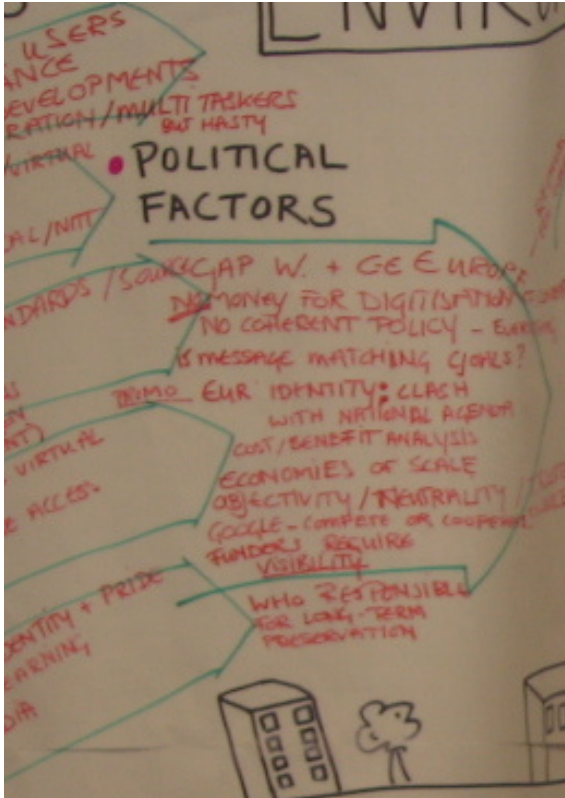 ENVIR
USERS
ANCE
DEVELOPMENTS
RATION/MULTI TASKERS
BUT HASTY
VIRTUAL
• POLITICAL
FACTORS
CAL/
NDARDS / SOURCE
GAP W. + CE EUROPE
NO MONEY FOR DIGITISATION
NO COHERENT POLICY -
IS MESSAGE MATCHING GOALS?
EUR IDENTITY: CLASH
WITH NATIONAL AGENDA
COST/BENEFIT ANALYSIS
ECONOMIES OF SCALE
OBJECTIVITY/NEUTRALITY/
GOOGLE-COMPETE OR COOPERATE
FUNDERS REQUIRE
VISIBILITY
WHO RESPONSIBLE
FOR LONG-TERM
PRESERVATION
ENT)
VIRTUAL
ACCESS
DENTITY + PRIDE
EARNING
DIA